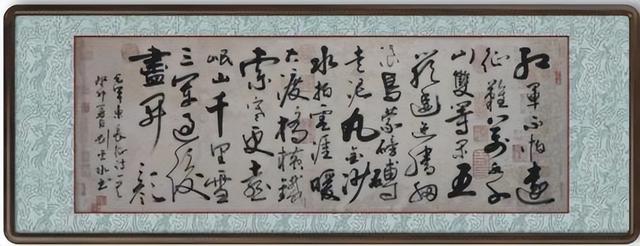 紅軍不怕遠
征難萬水千
山雙等閑五
嶺逶迤騰細
浪烏蒙磅礴
走泥丸金沙
水拍雲涯暖
大渡橋橫鐵
索寒更喜
岷山千里雪
三軍過後
盡開顏
毛澤東長征詩一首
癸卯夏日